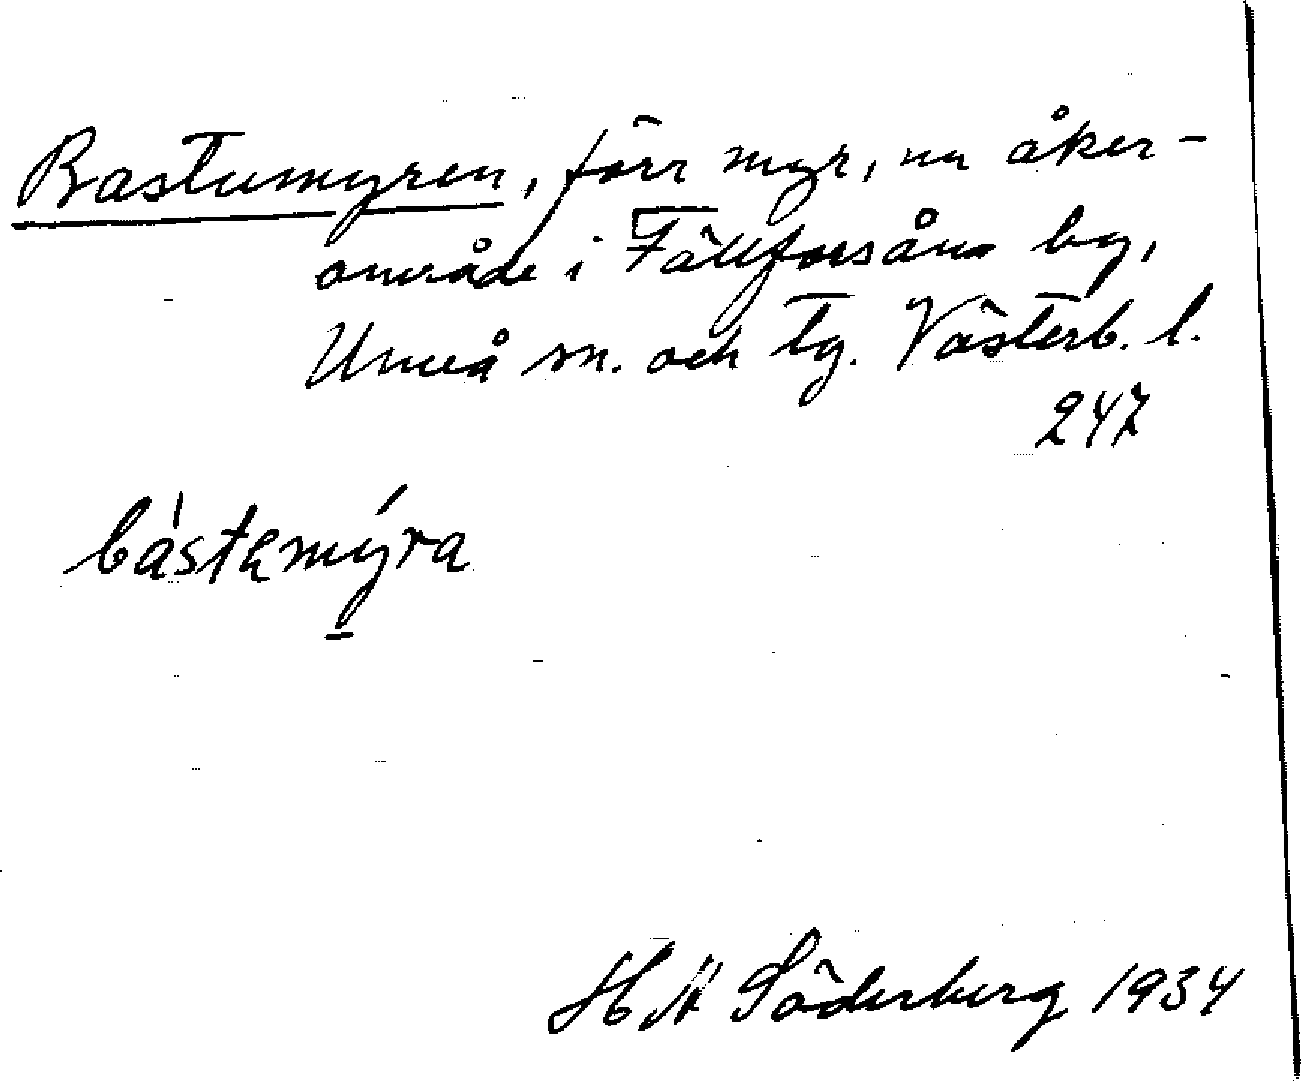 Bastumyren, förr myr, nu åker-
område i Fällforsåns by,
Umeå sn. och tg. Västerb. l.
247
bástamýra
H A Söderberg 1934